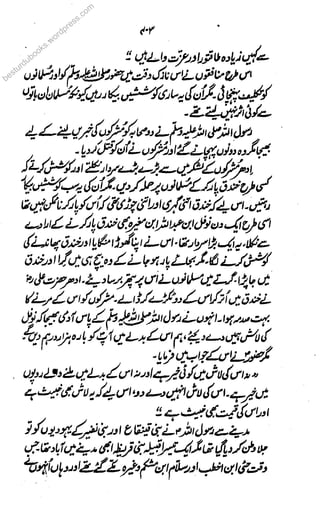 ۴۰۳
سے کہیں زیادہ طاقتور اور عزت والے ہیں ”
اس طرح منافقوں نے اس نازک وقت میں حضور صلی اللہ علیہ وسلم کو اور مسلمانوں
کو تکلیف پہنچائی۔ مگر اُن کی یہ ساری کوششیں بیکار رہیں کیونکہ مسلمان ان باتوں
سے کوئی اثر نہیں لیتے تھے۔
رسول اللہ صلی اللہ علیہ وسلم نے دو صحابہ کو مشرکوں کی خبریں لینے کے لیے
بھیجا مگر وہ دونوں پہچانے گئے اور مشرکوں نے اُن کو قتل کر دیا۔
ادھر مشرکوں کے لشکر میں سے بڑے بڑے سردار نکلتے اور کوشش کرتے کہ
کسی طرح خندق پار کر کے مسلمانوں پر حملہ کر دیں۔ مگر اُن کی یہ سب کوششیں بیکار
رہتیں۔ اس لیے کہ خندق اتنی گہری اور اتنی چوڑی تھی کہ اُس کو پار کرنا ممکن نہیں تھا
اسی طرح ایک دن نوفل ابن عبداللہ ابن مغیرہ بھی خندق پار کرنے کے ارادے
سے نکلا۔ یہ ایک بڑا سردار تھا۔ اس نے اپنا گھوڑا منگایا اور خندق پھاندنے کی
کوشش کرنے لگا۔ مگر بجائے پار ہو جانے کے وہ بیچ ہی میں گرا اور خندق
میں جا پڑا۔ گرتے میں مسلمانوں نے اس پر پتھر برسا دیئے۔ ادھر حضرت علی رضؓ
نے خندق میں اُتر کر اس کے دو ٹکڑے کر ڈالے۔ مشرکوں کو اس کے مرنے کا
بہت صدمہ ہوا۔ انہوں نے رسول اللہ صلی اللہ علیہ وسلم کے پاس آدمی بھیجا کہ نوفل
کی لاش ہمیں دے دیجئے، ہم اس کے بدلے میں آپ کو بارہ ہزار درہم دیں گے
مگر حضورؐ نے اس کے جواب میں فرمایا۔
” نہ اس کی لاش میں کوئی خیر ہے اور نہ اس کے بدلے میں ملنے والے روپوں
میں خیر ہے۔ اس کی لاش انہیں دے دو اس لیے کہ یہ لاش بھی خبیث ہے
اور اس کی قیمت بھی خبیث ہے ”
مدینے سے رسول اللہ ؐ نے بنی قینقاع اور بنی نضیر کے یہودیوں کو تو
جلا وطن کر دیا گیا تھا مگر ایک تیسرا قبیلہ بنی قریظہ ابھی مدینے میں آباد تھا جس
وقت حیی ابن اخطب اور سلام ابن مشکم وغیرہ مکے گئے تھے اور وہاں انہوں نے
besturdubooks.wordpress.com